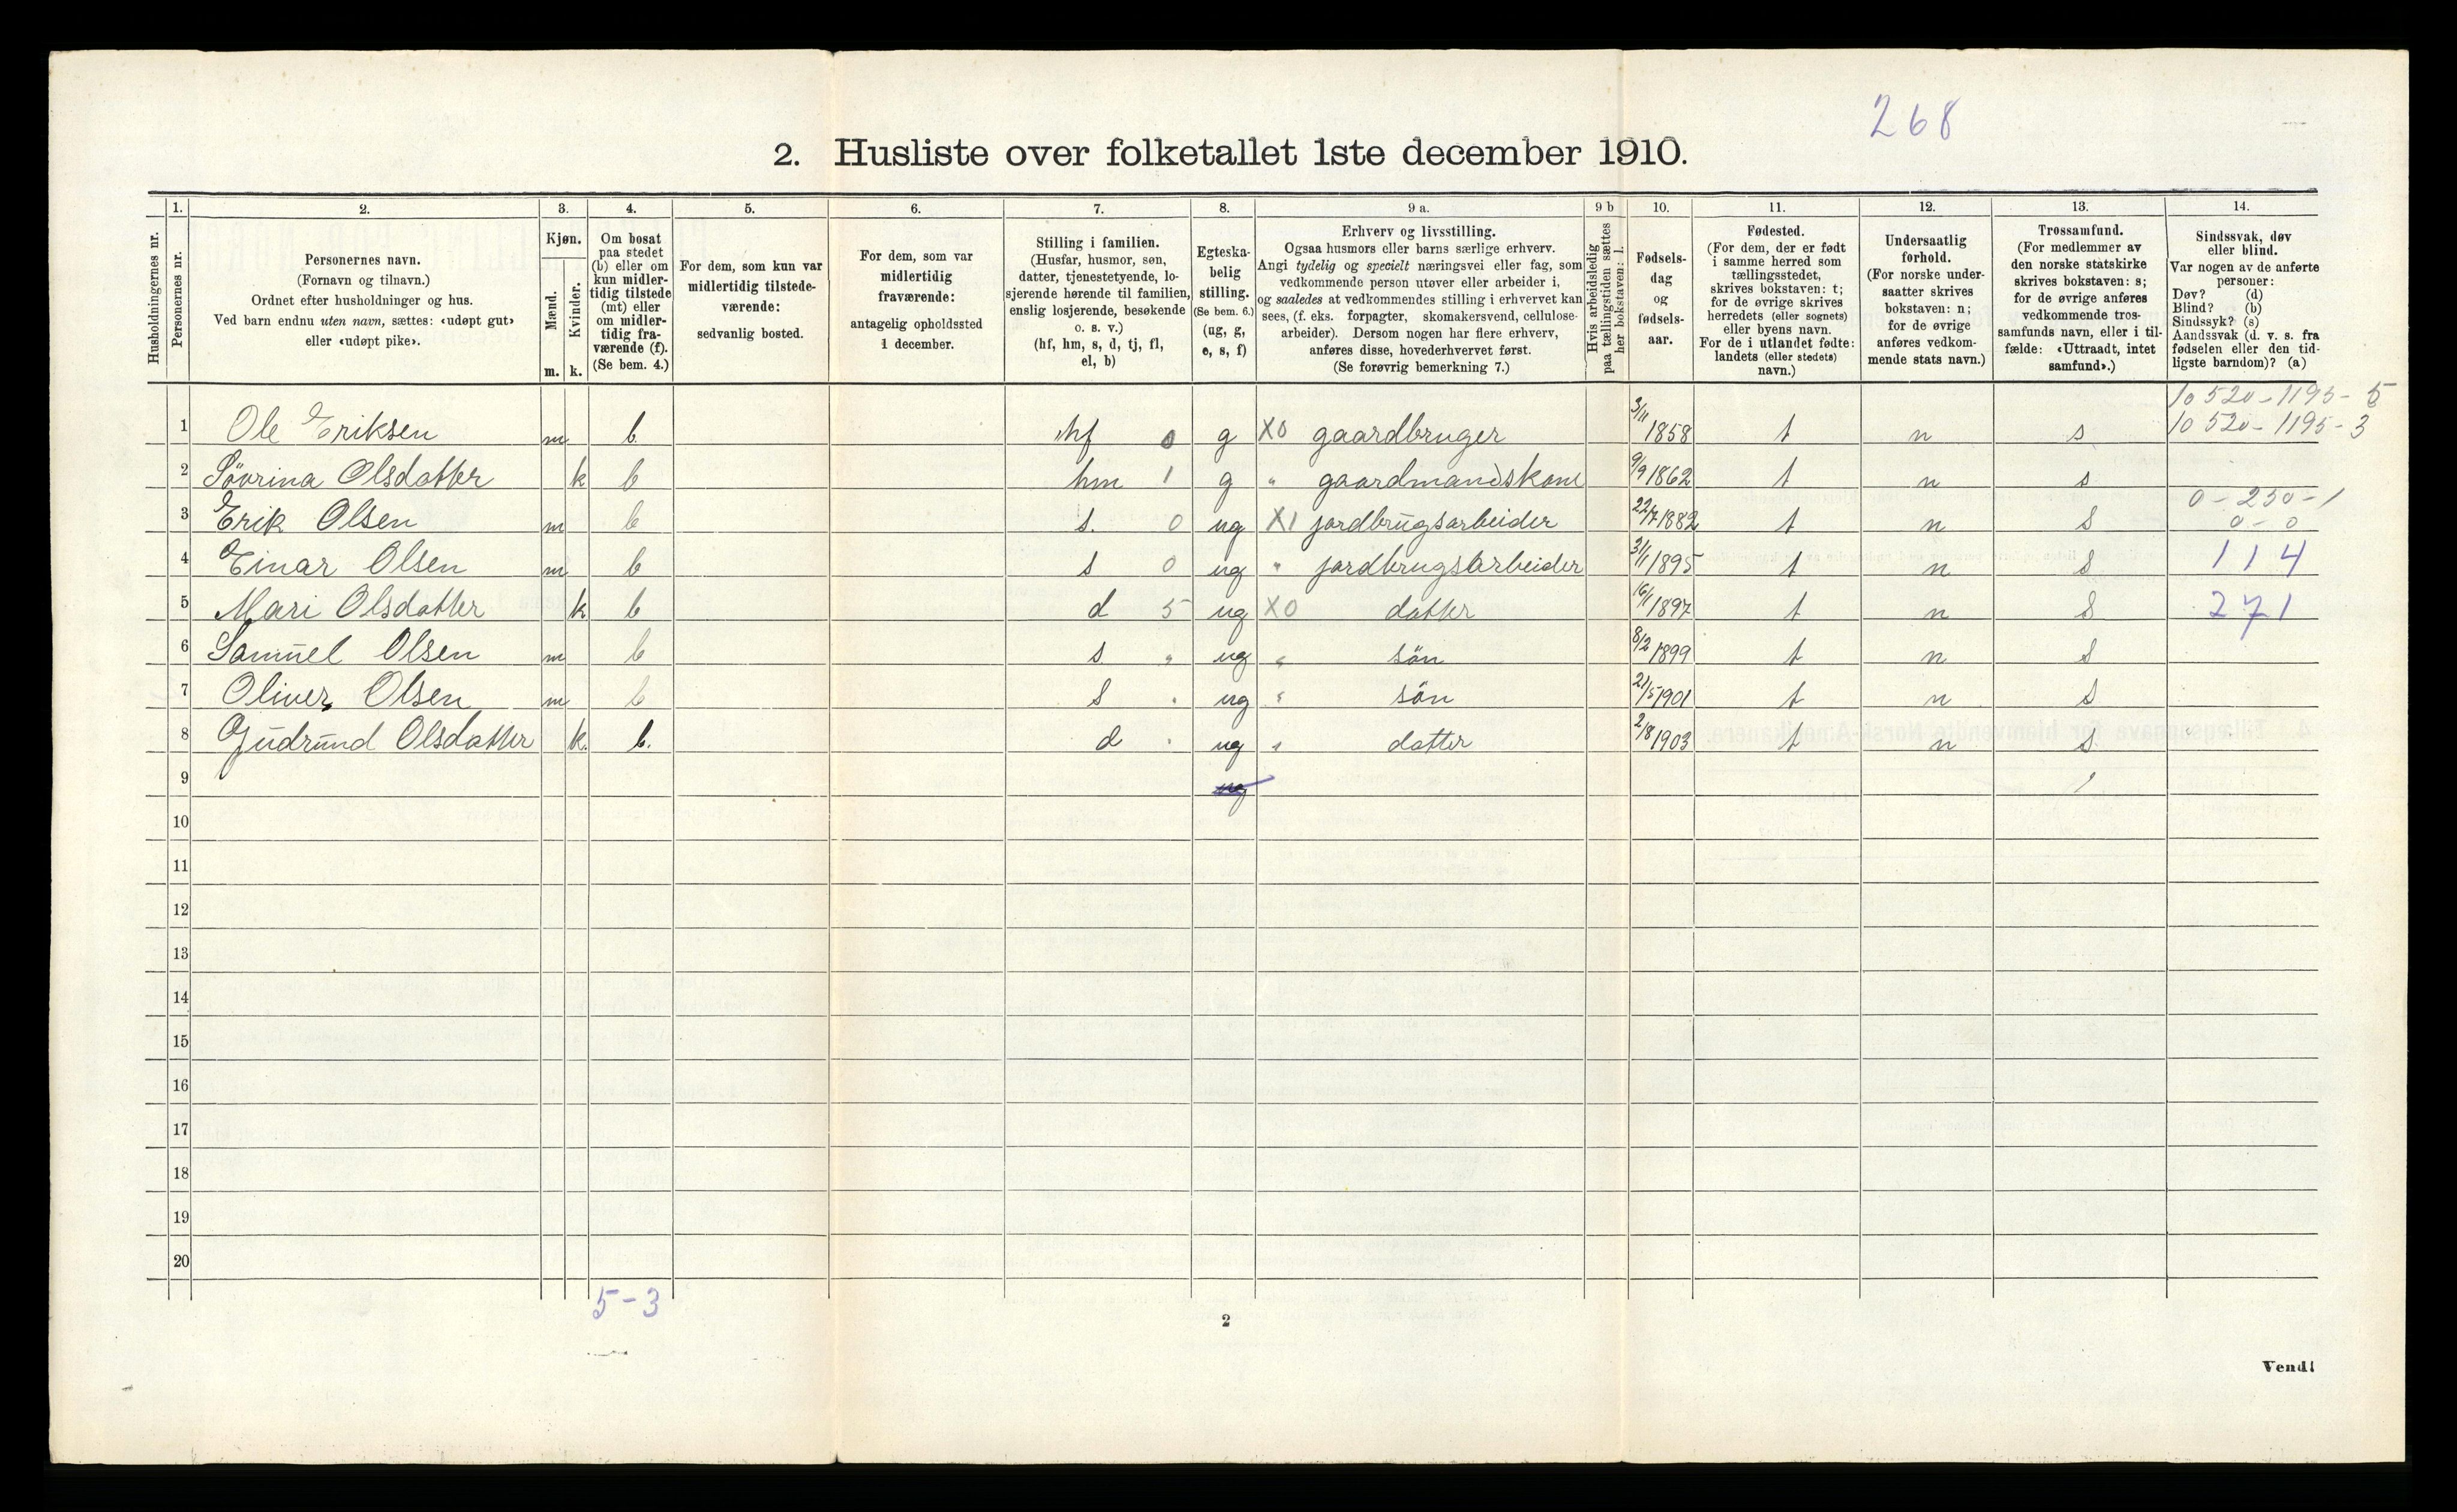 268
2. Husliste over folketallet 1ste december 1910.
Husholdningernes nr.
1.
Personernes nr.
2.
Personernes navn.
(Fornavn og tilnavn.)
Ordnet efter husholdninger og hus.
Ved barn endnu uten navn, sættes: «udøpt gut»
eller «udøpt pike».
3.
Kjøn.
Mænd.
Kvinder.
m. k.
4.
Om bosat
paa stedet
(b) eller om
kun midler-
tidig tilstede
(mt) eller
om midler-
tidig fra-
værende (f).
(Se bem. 4.)
5.
For dem, som kun var
midlertidig tilstede-
værende:
sedvanlig bosted.
6.
For dem, som var
midlertidig
fraværende:
antagelig opholdssted
1 december.
7.
Stilling i familien.
(Husfar, husmor, søn,
datter, tjenestetyende, lo-
sjerende hørende til familien,
enslig losjerende, besøkende
o. s. v.)
(hf, hm, s, d, tj, fl,
el, b)
8.
Egteska-
belig
stilling.
(Se bem. 6.)
(ug, g,
e, s, f)
9 a.
Erhverv og livsstilling.
Ogsaa husmors eller barns særlige erhverv.
Angi tydelig og specielt næringsvei eller fag, som
vedkommende person utøver eller arbeider i,
og saaledes at vedkommendes stilling i erhvervet kan
sees, (f. eks. forpagter, skomakersvend, cellulose-
arbeider). Dersom nogen har flere erhverv,
anføres disse, hovederhvervet først.
(Se forøvrig bemerkning 7.)
9 b
Hvis arbeidsledig
paa tællingstiden sættes
her bokstaven: l.
10.
Fødsels-
dag
og
fødsels-
aar.
11.
Fødested.
(For dem, der er født
i samme herred som
tællingsstedet,
skrives bokstaven: t;
for de øvrige skrives
herredets (eller sognets)
eller byens navn.
For de i utlandet fødte:
landets (eller stedets)
navn.)
12.
Undersaatlig
forhold.
(For norske under-
saatter skrives
bokstaven: n;
for de øvrige
anføres vedkom-
mende stats navn.)
13.
Trossamfund.
(For medlemmer av
den norske statskirke
skrives bokstaven: s;
for de øvrige anføres
vedkommende tros-
samfunds navn, eller i til-
fælde: «Uttraadt, intet
samfund».)
14.
Sindssvak, døv
eller blind.
Var nogen av de anførte
personer:
Døv? (d)
Blind? (b)
Sindssyk? (s)
Aandssvak (d. v. s. fra
fødselen eller den tid-
ligste barndom)? (a)
10 520-1195-5
1 Ole Eriksen m b hf 0 g X0 gaardbruger 3/11 1858 t n s 10 520-1195-3
2 Sövrina Olsdatter k b hm 1 g " gaardmandskone 9/9 1862 t n s
0-250-1
3 Erik Olsen m b s. 0 ug X1 jordbrugsarbeider 22/7 1882 t n s 0-0
4 Einar Olsen m b s 0 ug " jordbrugsarbeider 31/1 1895 t n s 114
5 Mari Olsdatter k b d 5 ug X0 datter 16/1 1897 t n s 271
6 Samuel Olsen m b s " ug " sön 8/2 1899 t n s
7 Oliver Olsen m b s " ug " sön 21/5 1901 t n s
8 Gudrund Olsdatter k. b. d " ug " datter 2/8 1903 t n s
9 ug
10
11
12
13
14
15
16
17
18
19
20
5-3
2
Vend!